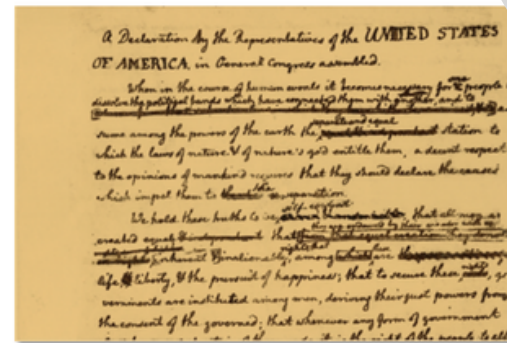 a Declaration by the Representatives of the UNITED STATES
OF AMERICA, in General Congress assembled.
When in the course of human events it becomes necessary for one people to
dissolve the political bands which have connected them with another, and to
sume among the powers of the earth the separate and equal station to
which the laws of nature & of nature's god entitle them, a decent respect
to the opinions of mankind requires that they should declare the causes
which impel them to the separation.
We hold these truths to be self-evident, that all men are
created equal that
rights; that among these are
life, liberty, & the pursuit of happiness; that to secure these rights, go
vernments are instituted among men, deriving their just powers from
the consent of the governed; that whenever any form of government
it is the right of the people to